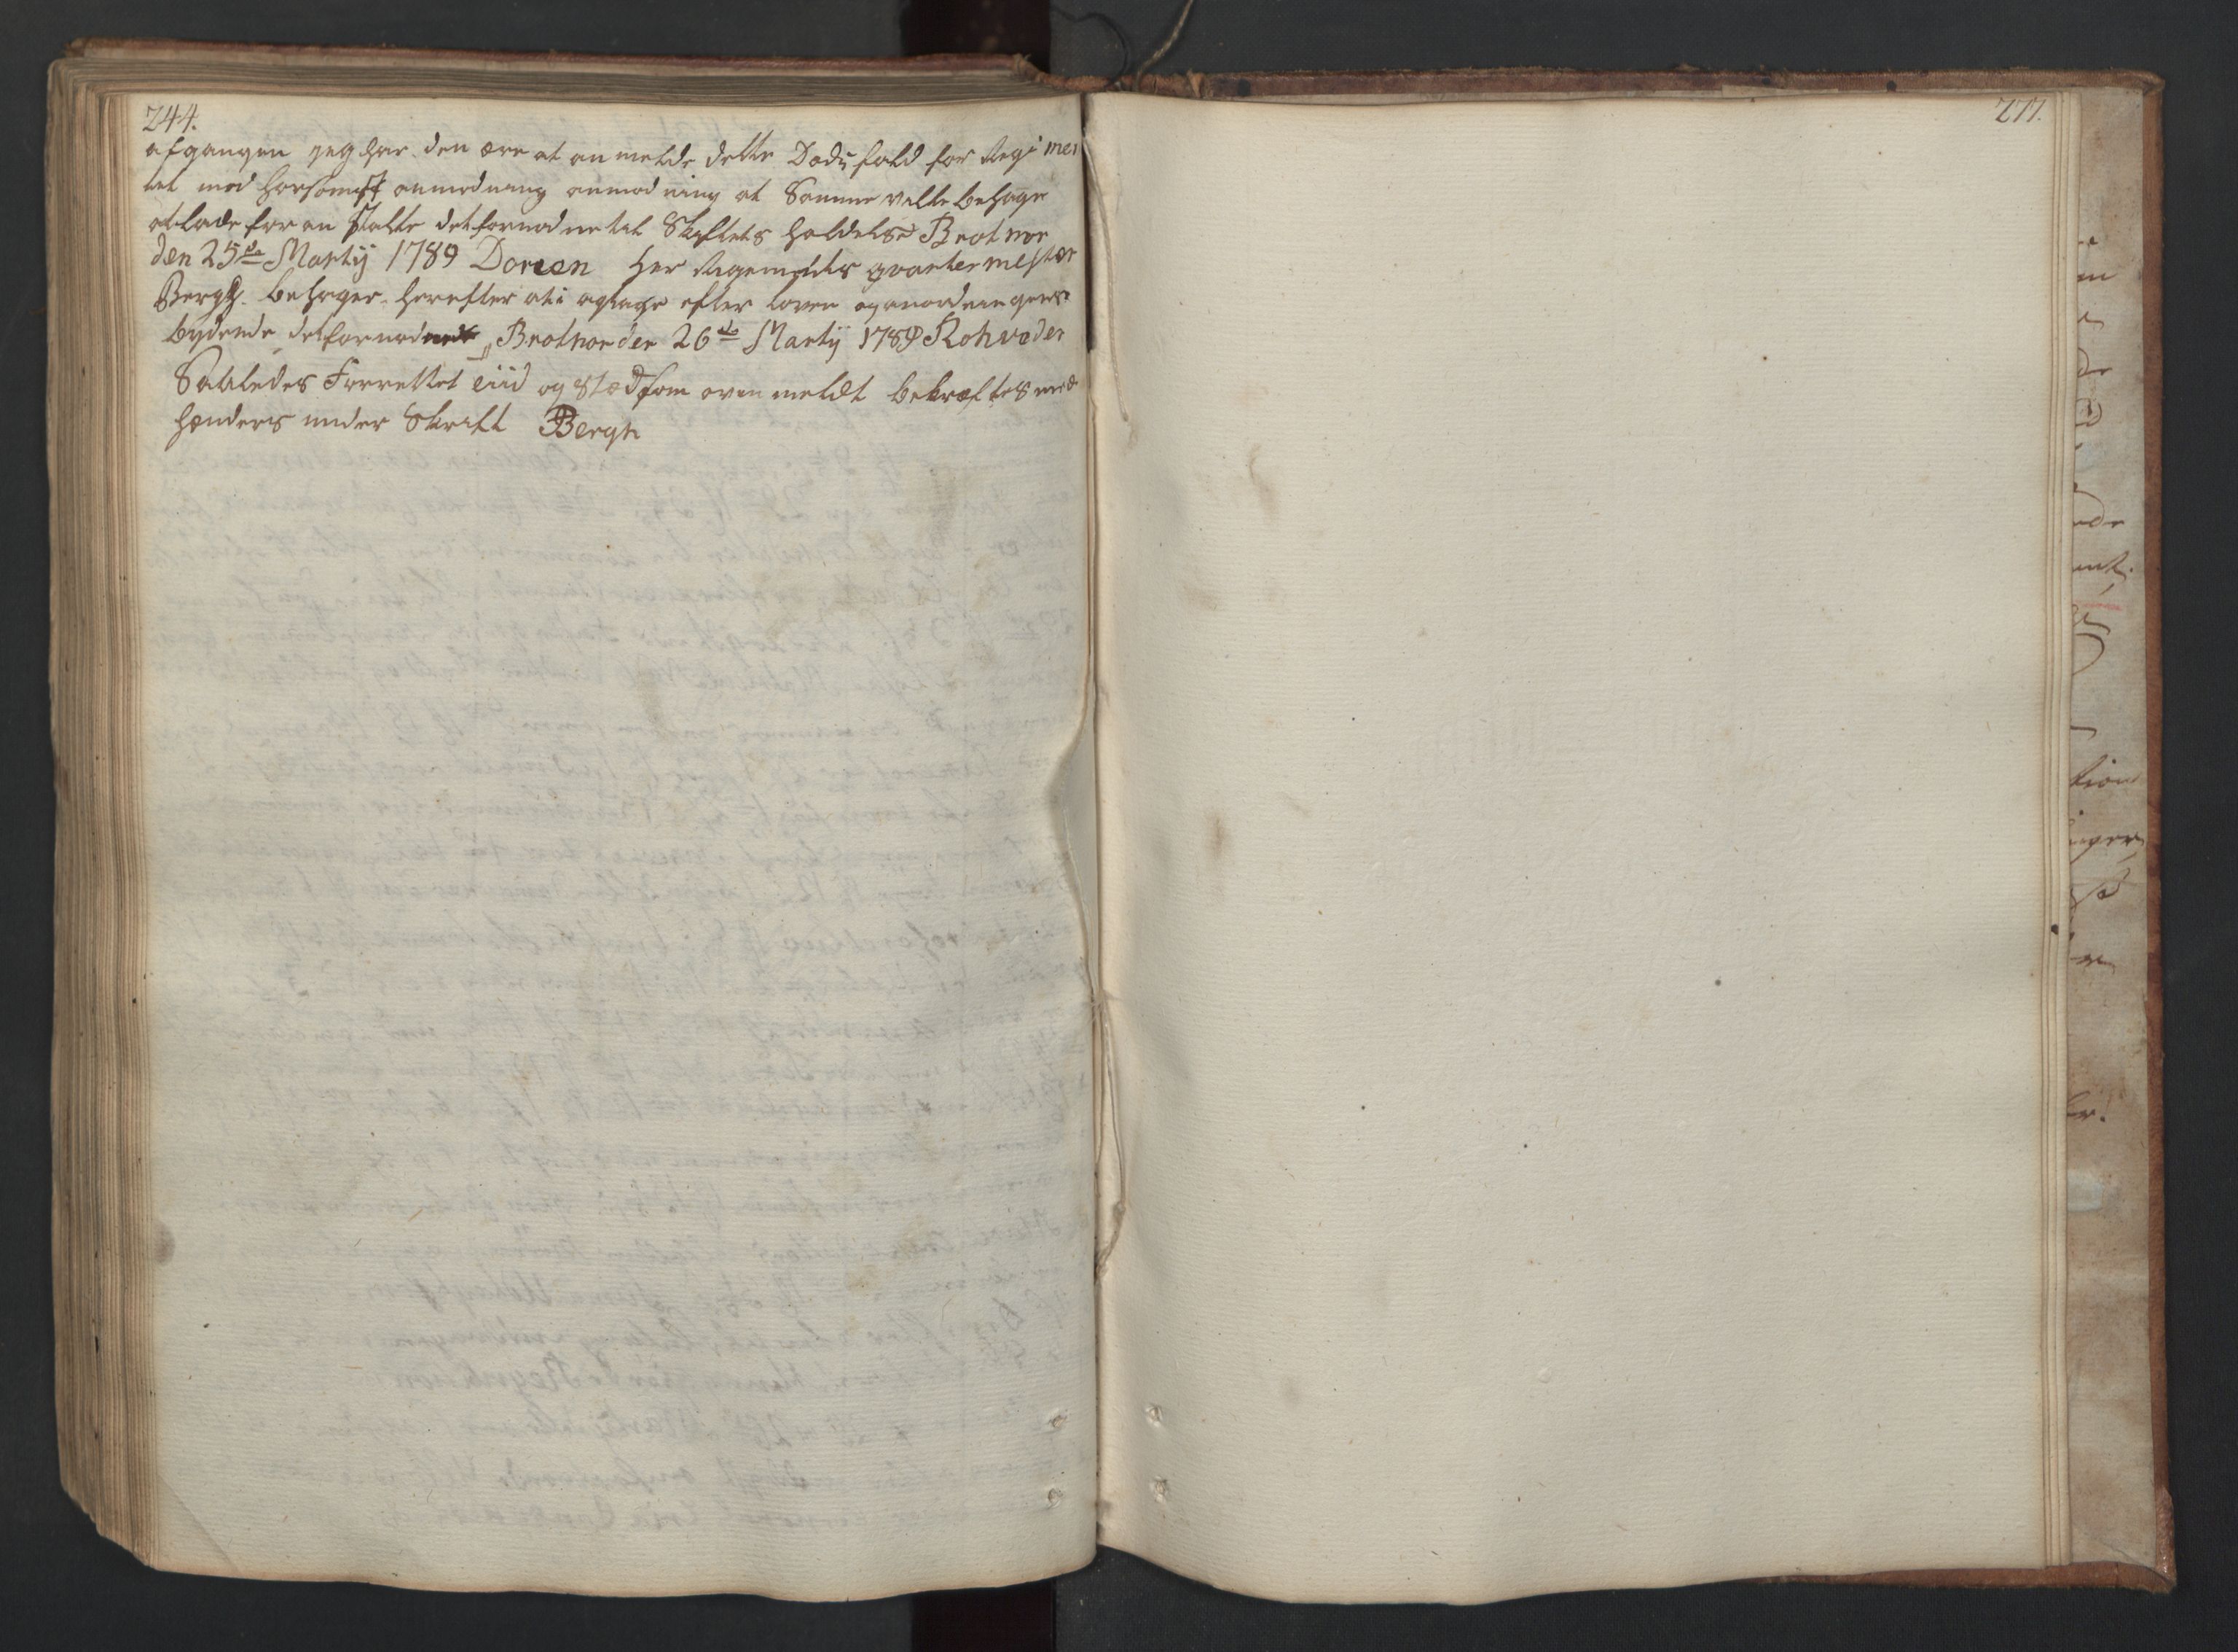 244.
afgangen jeg har den ære at anmelde dette Dødsfald for Regimen
tet med horsomst anmodning anmodning at Samme ville behage
at lade for an stalte det fornødne til Skiftets holdelse Brotnor
den 25de Martij 1789 Dorien Her Regements qvarter mester
Bergh. behager herefter at i agtage efter loven og anordningens
bydende det fornødne Brotnor den 26de Martij 1789 Rohweder
Saaledes Forrettet tiid og stæd som oven meldt bekræftes med
hænders under Skrift Bergh
277.